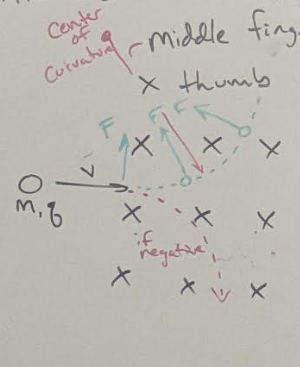 Center
of
Curvature
middle fing
thumb
F
F
F
v
m, q
if
negative